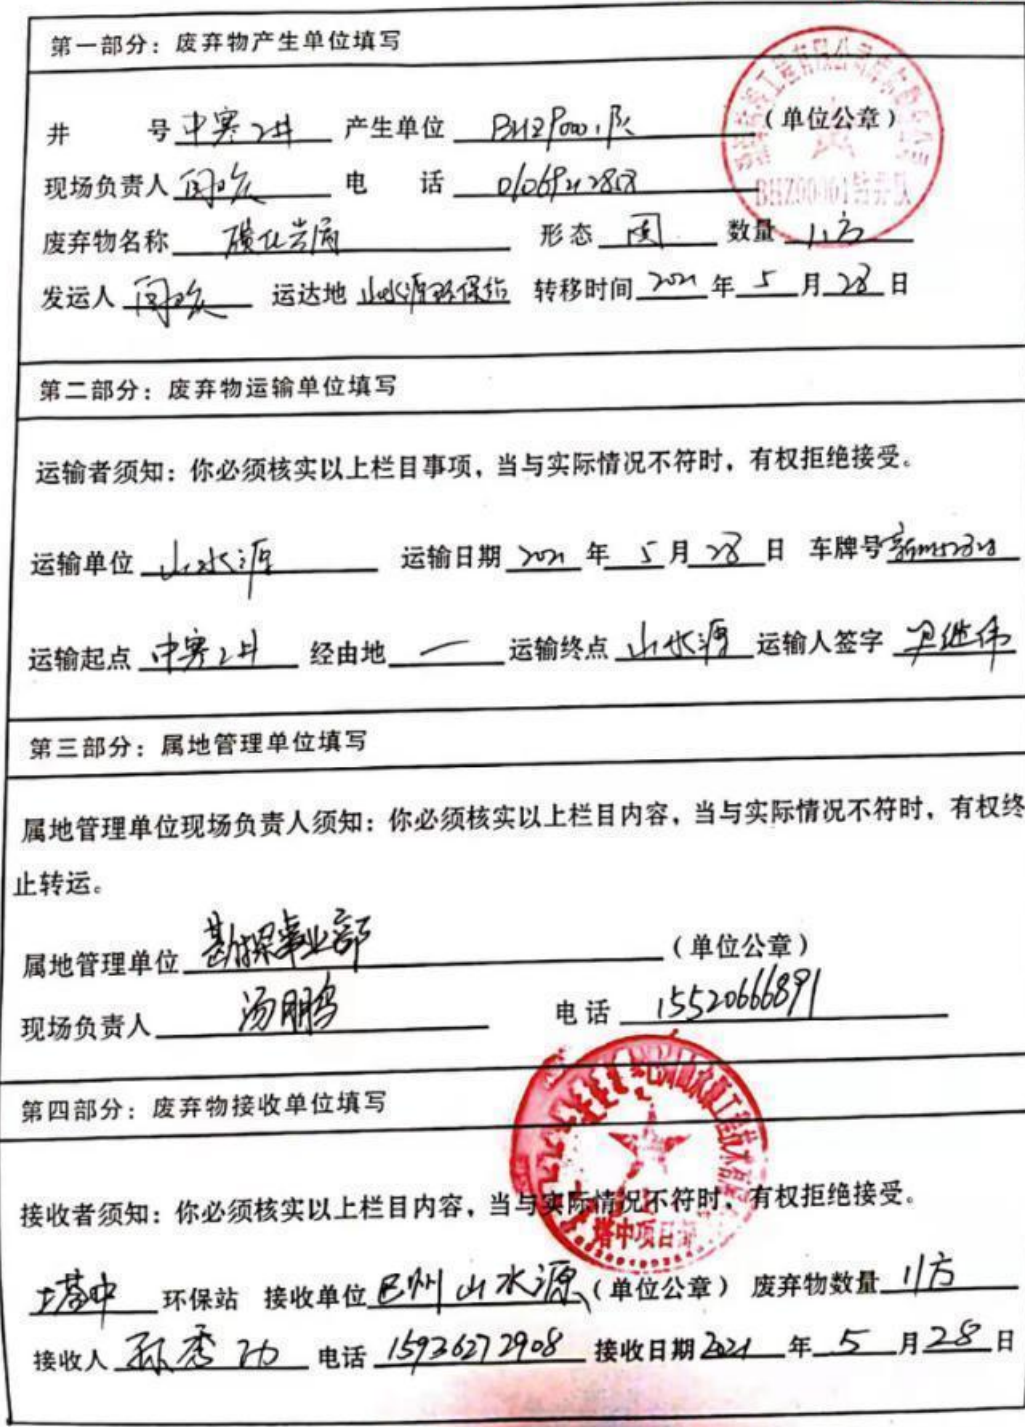 第一部分：废弃物产生单位填写
井 号 中寒2井 产生单位 BHZ90001队 （单位公章）
BHZ90001钻井队
现场负责人 电 话
废弃物名称 磺化岩屑 形态 固 数量 11方
发运人 运达地 山水源环保站 转移时间 2021 年 5 月 28 日
第二部分：废弃物运输单位填写
运输者须知：你必须核实以上栏目事项，当与实际情况不符时，有权拒绝接受。
运输单位 山水源 运输日期 2021 年 5 月 28 日 车牌号
运输起点 中寒2井 经由地 一 运输终点 山水源 运输人签字 尹继伟
第三部分：属地管理单位填写
属地管理单位现场负责人须知：你必须核实以上栏目内容，当与实际情况不符时，有权终
止转运。
属地管理单位 勘探事业部 （单位公章）
现场负责人 汤鹏 电话 15520666891
第四部分：废弃物接收单位填写
接收者须知：你必须核实以上栏目内容，当与实际情况不符时，有权拒绝接受。
塔中项目部
塔中 环保站 接收单位 巴州山水源（单位公章） 废弃物数量 11方
接收人 孙秀功 电话 15936272908 接收日期 2021 年 5 月 28 日